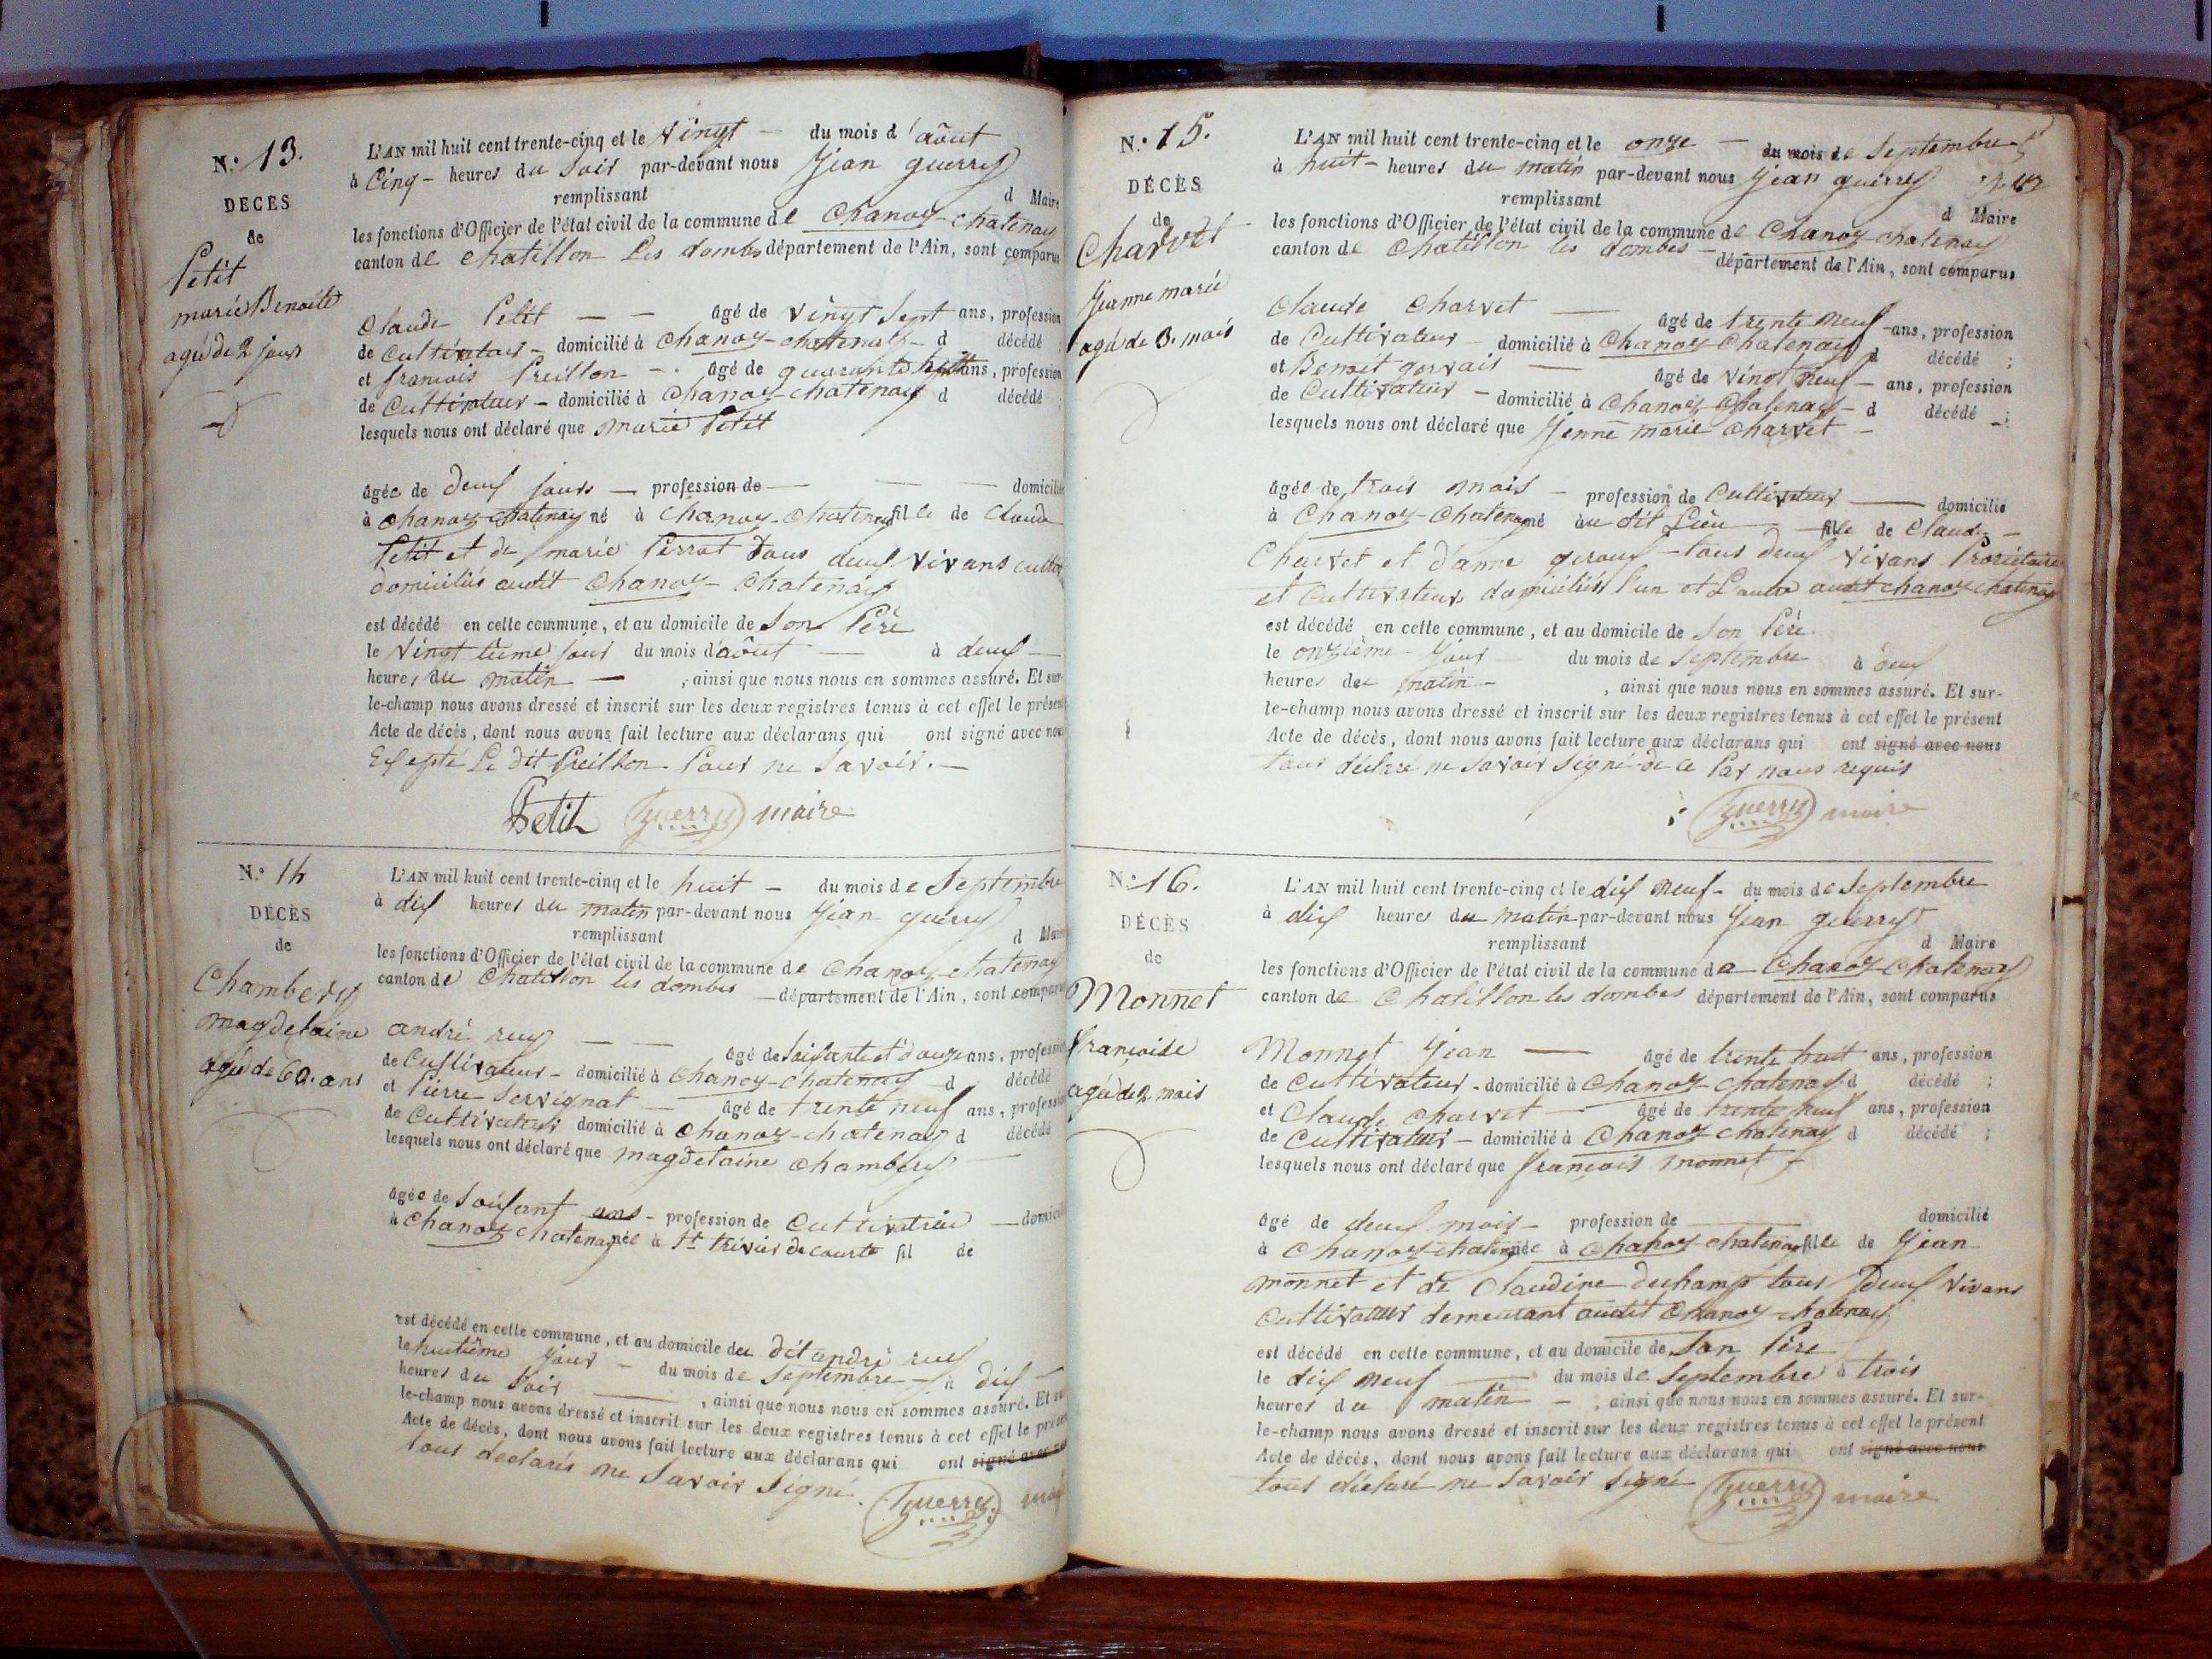 N.° 13.
DÉCÈS
de
Petit
marie Benoite
agée de 2 jours
L'AN mil huit cent trente-cinq et le vingt — du mois d'août
à cinq - heures du soir par-devant nous Jean guerry
remplissant d Maire
les fonctions d'Officier de l'état civil de la commune de Chanoz-chatenay
canton de chatillon Les dombes département de l'Ain, sont comparus
Claude Petit — — âgé de vingt sept ans, profession
de Cultivateur - domicilié à Chanoz-chatenay - d décédé ;
et francois Preillon - . âgé de quarante huit ans, profession
de Cultivateur - domicilié à Chanoz-chatenay d décédé ;
lesquels nous ont déclaré que marie Petit
âgée de deux jours — profession de — — — domiciliée
à chanoz-chatenay né à chanoz-chatenay fille de Claude
Petit et de marie Perrat tous deux vivans
domiciliés audit Chanoz-Chatenay
est décédé en cette commune, et au domicile de son Père
le vingtième jour du mois d'août — à deux —
heures du matin — , ainsi que nous nous en sommes assuré. Et sur-
le-champ nous avons dressé et inscrit sur les deux registres tenus à cet effet le présent
Acte de décès, dont nous avons fait lecture aux déclarans qui ont signé avec nous
Excepté Le dit Preillon Pour ne savoir. —
Petit Guerry maire
N.° 14
DÉCÈS
de
Chambery
magdelaine
agée de 60. ans
L'AN mil huit cent trente-cinq et le huit — du mois de Septembre
à dix heures du matin par-devant nous Jean guerry
remplissant d Maire
les fonctions d'Officier de l'état civil de la commune de Chanoz-chatenay
canton de Chatillon les dombes — département de l'Ain, sont comparus
andré ruy — — âgé de soixante et douze ans, profession
de Cultivateur - domicilié à Chanoz-chatenay - d décédé
et Pierre Servignat — âgé de trente neuf ans, profession
de Cultivateur domicilié à Chanoz-chatenay d décédé
lesquels nous ont déclaré que magdelaine chambery —
âgée de soixant ans - profession de Cultivatrice — domicilié
à Chanoz-chatenay née à St trivier de courte fil de
est décédé en cette commune, et au domicile du dit andré ruy
le huitième jour — du mois de Septembre - à dix —
heures du soir — , ainsi que nous nous en sommes assuré. Et sur-
le-champ nous avons dressé et inscrit sur les deux registres tenus à cet effet le présent
Acte de décès, dont nous avons fait lecture aux déclarans qui ont signé avec nous
tous declarés ne savoir signé. Guerry maire
N.° 15.
DÉCÈS
de
Charvet
Jeanne marie
agée de 3. mois
L'AN mil huit cent trente-cinq et le onze — du mois de Septembre
à huit - heures du matin par-devant nous Jean guerry
remplissant d Maire
les fonctions d'Officier de l'état civil de la commune de Chanoz-chatenay
canton de Chatillon les dombes — département de l'Ain, sont comparus
Claude Charvet — âgé de trente neuf - ans, profession
de Cultivateur - domicilié à Chanoz-Chatenay d décédé ;
et Benoit gervais — âgé de vingt neuf - ans, profession
de Cultivateur - domicilié à Chanoz-Chatenay - d décédé ;
lesquels nous ont déclaré que Jenne marie Charvet -
âgée de trois mois - profession de Cultivateur — domicilié
à Chanoz-Chatenay né au dit Lieu — fille de Claude -
Charvet et d'anne - tous deux vivans Proriétaire
et Cultivateurs domiciliés l'un et L'autre audit chanoz chatenay
est décédé en cette commune, et au domicile de son Père.
le onzième jour du mois de Septembre à deux
heures du matin - , ainsi que nous nous en sommes assuré. Et sur-
le-champ nous avons dressé et inscrit sur les deux registres tenus à cet effet le présent
Acte de décès, dont nous avons fait lecture aux déclarans qui ont signé avec nous
tous déclaré ne savoir signé de ce Par nous requis
Guerry maire
N.° 16.
DÉCÈS
de
Monnet
Françoise
agée de 2 mois
L'AN mil huit cent trente-cinq et le dix neuf - du mois de Septembre
à dix heures du matin par-devant nous Jean guerry
remplissant d Maire
les fonctions d'Officier de l'état civil de la commune de Chanoz-Chatenay
canton de Chatillon les dombes département de l'Ain, sont comparus
Monnet Jean — âgé de trente huit ans, profession
de Cultivateur - domicilié à Chanoz-chatenay d décédé ;
et Claude Charvet — âgé de trente neuf ans, profession
de Cultivateur - domicilié à Chanoz-chatenay d décédé ;
lesquels nous ont déclaré que françois monnet -
âgé de deux mois - profession de — domicilié
à Chanoz-chatenay née à Chanoz-chatenay fille de Jean
monnet et de Claudine duchamp tous Deux vivans
Cultivateur demeurant audit Chanoz-chatenay
est décédé en cette commune, et au domicile de son Père
le dix neuf — du mois de Septembre à trois
heures du matin - , ainsi que nous nous en sommes assuré. Et sur-
le-champ nous avons dressé et inscrit sur les deux registres tenus à cet effet le présent
Acte de décès, dont nous avons fait lecture aux déclarans qui ont signé avec nous
tous déclaré ne savoir signé Guerry maire